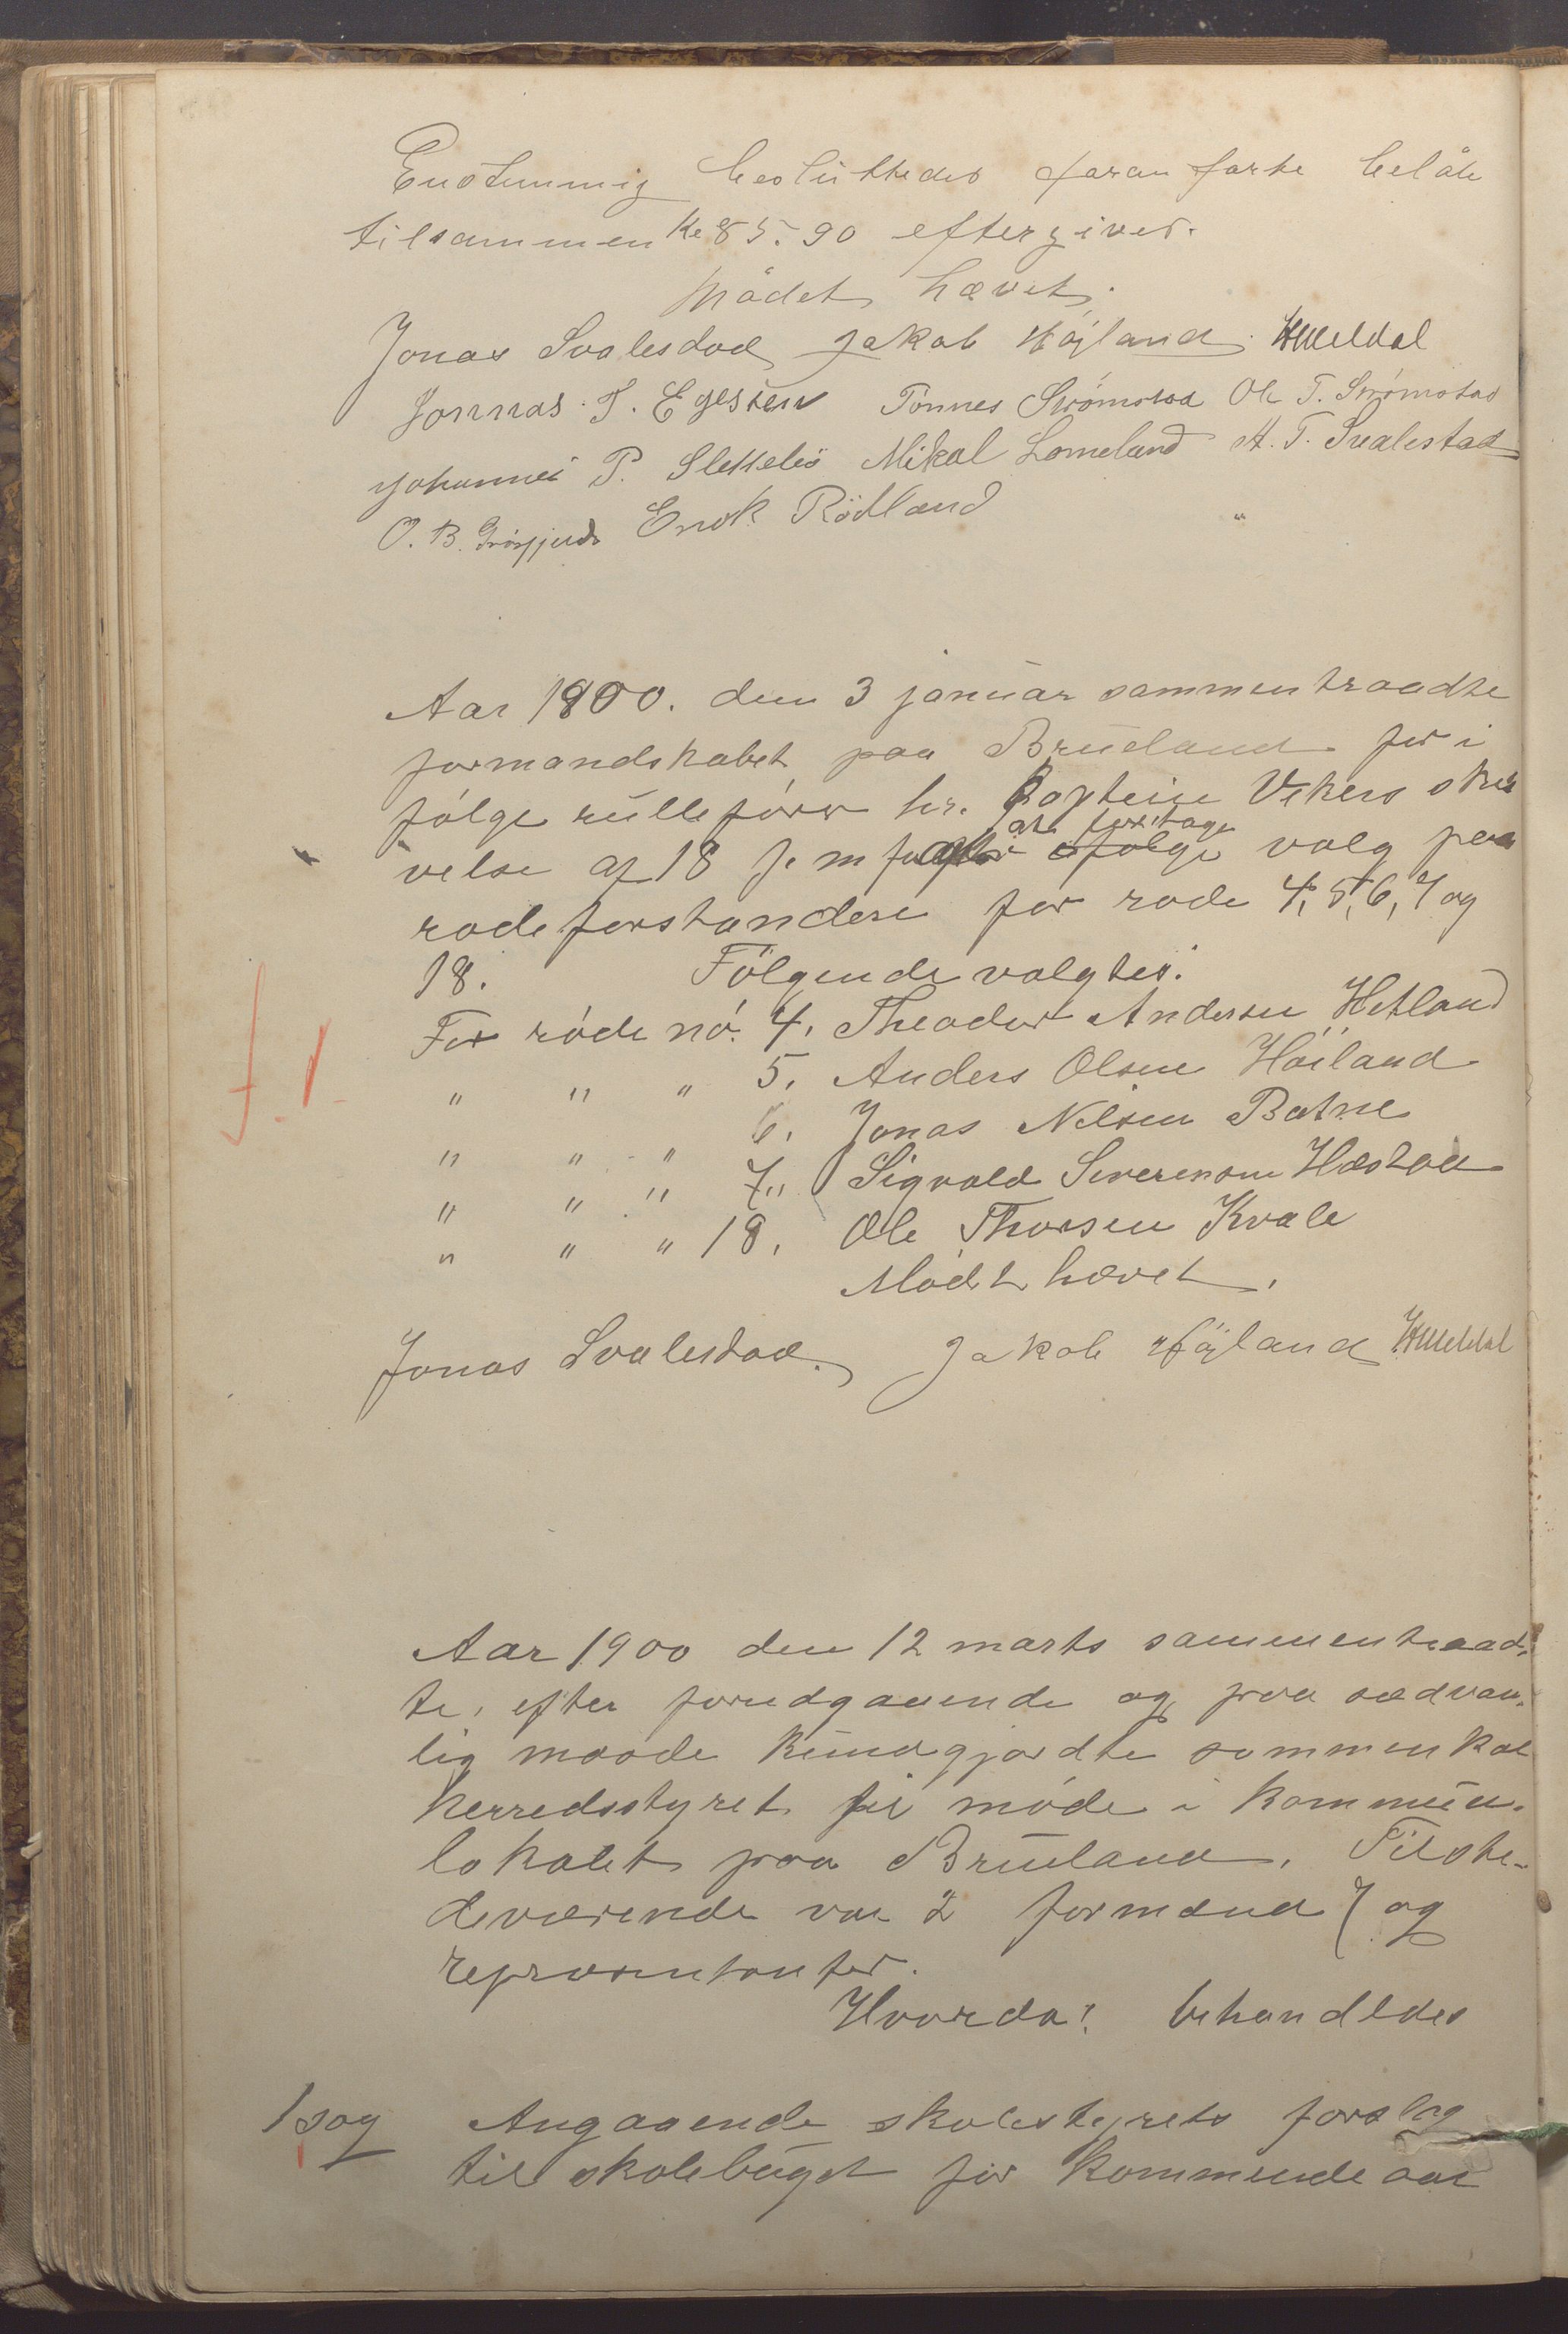 Enstemmig besluttedes foranførte beløb
tilsammen Kr 85.90 eftergives.
Mödet hævet.
Jonas Svalestad Jakob Höjland HMeldal
Jonnas T. Egesten Tönnes Strömstad Ole T. Strömstad
Johannes P. Slettebö Mikal Lomeland A. T. Svalestad
O. B. Enok Rödland
Aar 1900. den 3 januar sammentraadte
formandskabet paa Brueland for i
følge rulleförer hr. Kapteine Vekers skri
velse af 18 f. m at foretage valg paa
rodeforstandere for rode 4, 5, 6, 7 og
18. Fölgende valgtes:
For röde nó. 4, Theodor Andersen Hetland
" " " 5, Anders Olsen Höiland
" " " 6, Jonas Nelsen Batne
" " " 7" Sigvald Severensen Hæstad
" " " 18, Ole Thorsen Kvale
Mödet hævet.
Jonas Svalestad. Jakob Höjland HMeldal
f. 1.
Aar 1900 den 12 marts sammentraad-
te, efter forudgaaende og paa sædvan-
lig maade kundgjordte sammenkal
herredsstyret til möde i kommun-
lokalet paa Brueland. Tilste-
deværende var 2 formænd 7 og
repræsentanter.
Hvorda! behandledes
1 sag Angaaende skolestyrets forslag
til skolebuget for kommende aar